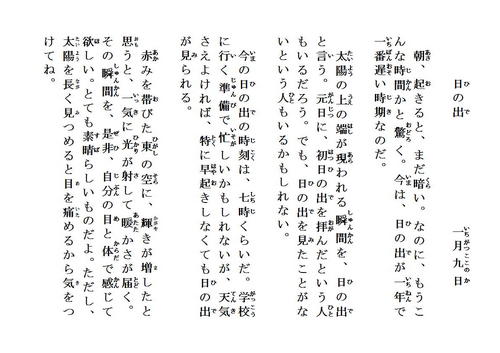 日の出
一月九日
朝、起きると、まだ暗い。なのに、もうこ
んな時間かと驚く。今は、日の出が一年で
一番遅い時期なのだ。
太陽の上の端が現われる瞬間を、日の出
と言う。元日に、初日の出を拝んだという人
もいるだろう。でも、日の出を見たことがな
いという人もいるかもしれない。
今の日の出の時刻は、七時くらいだ。学校
に行く準備で忙しいかもしれないが、天気
さえよければ、特に早起きしなくても日の出
が見られる。
赤みを帯びた東の空に、輝きが増したと
思うと、一気に光が射して暖かさが届く。
その瞬間を、是非、自分の目と体で感じて
欲しい。とても素晴らしいものだよ。ただし、
太陽を長く見つめると目を痛めるから気をつ
けてね。